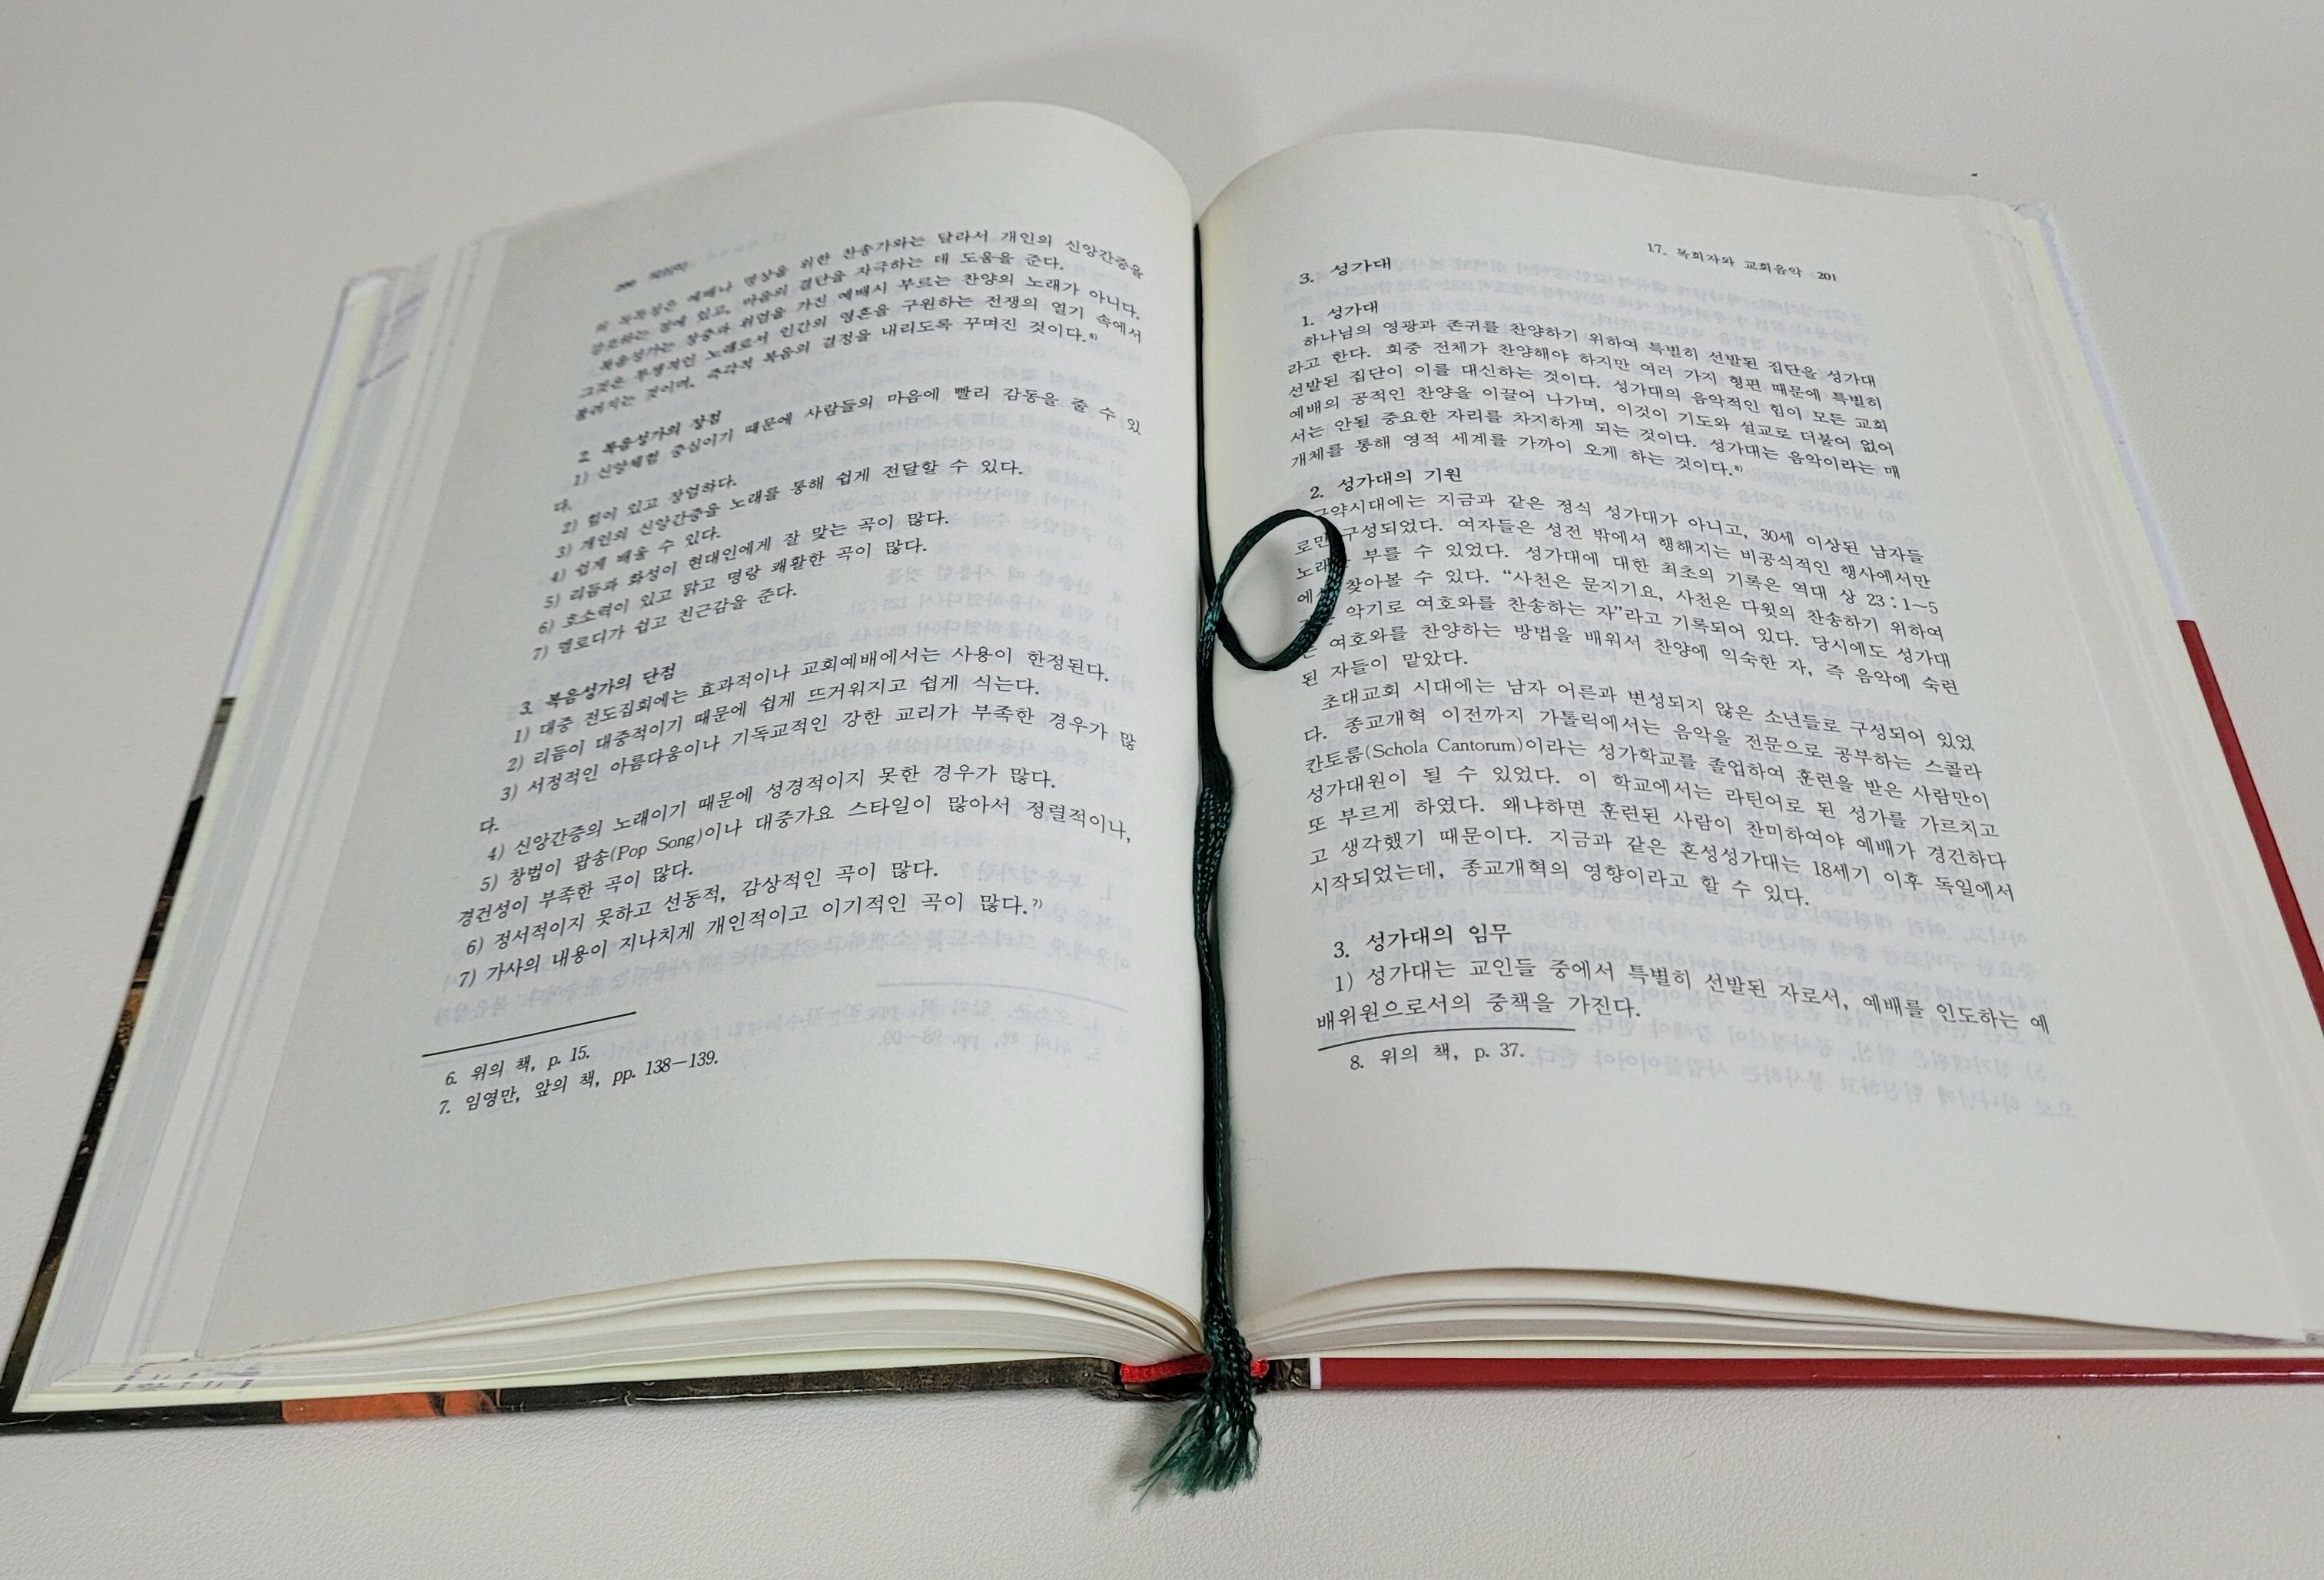 의 특징은 예배나 명상을 위한 찬송가와는 달라서 개인의 신앙간증을
강조하는 점에 있고, 마음의 결단을 자극하는 데 도움을 준다.
복음성가는 장중과 위엄을 가진 예배시 부르는 찬양의 노래가 아니다.
그것은 투쟁적인 노래로서 인간의 영혼을 구원하는 전쟁의 열기 속에서
불려지는 것이며, 즉각적 복음의 결정을 내리도록 꾸며진 것이다.⁶⁾
2. 복음성가의 장점
1) 신앙체험 중심이기 때문에 사람들의 마음에 빨리 감동을 줄 수 있
다.
2) 힘이 있고 장엄하다.
3) 개인의 신앙간증을 노래를 통해 쉽게 전달할 수 있다.
4) 쉽게 배울 수 있다.
5) 리듬과 화성이 현대인에게 잘 맞는 곡이 많다.
6) 호소력이 있고 맑고 명랑 쾌활한 곡이 많다.
7) 멜로디가 쉽고 친근감을 준다.
3. 복음성가의 단점
1) 대중 전도집회에는 효과적이나 교회예배에서는 사용이 한정된다.
2) 리듬이 대중적이기 때문에 쉽게 뜨거워지고 쉽게 식는다.
3) 서정적인 아름다움이나 기독교적인 강한 교리가 부족한 경우가 많
다.
4) 신앙간증의 노래이기 때문에 성경적이지 못한 경우가 많다.
5) 창법이 팝송(Pop Song)이나 대중가요 스타일이 많아서 정렬적이나,
경건성이 부족한 곡이 많다.
6) 정서적이지 못하고 선동적, 감상적인 곡이 많다.
7) 가사의 내용이 지나치게 개인적이고 이기적인 곡이 많다.⁷⁾
6. 위의 책, p. 15.
7. 임영만, 앞의 책, pp. 138—139.
17. 목회자와 교회음악 201
3. 성가대
1. 성가대
하나님의 영광과 존귀를 찬양하기 위하여 특별히 선발된 집단을 성가대
라고 한다. 회중 전체가 찬양해야 하지만 여러 가지 형편 때문에 특별히
선발된 집단이 이를 대신하는 것이다. 성가대의 음악적인 힘이 모든 교회
예배의 공적인 찬양을 이끌어 나가며, 이것이 기도와 설교로 더불어 없어
서는 안될 중요한 자리를 차지하게 되는 것이다. 성가대는 음악이라는 매
개체를 통해 영적 세계를 가까이 오게 하는 것이다.⁸⁾
2. 성가대의 기원
구약시대에는 지금과 같은 정식 성가대가 아니고, 30세 이상된 남자들
로만 구성되었다. 여자들은 성전 밖에서 행해지는 비공식적인 행사에서만
노래를 부를 수 있었다. 성가대에 대한 최초의 기록은 역대 상 23:1~5
에서 찾아볼 수 있다. “사천은 문지기요, 사천은 다윗의 찬송하기 위하여
악기로 여호와를 찬송하는 자”라고 기록되어 있다. 당시에도 성가대
는 여호와를 찬양하는 방법을 배워서 찬양에 익숙한 자, 즉 음악에 숙련
된 자들이 맡았다.
초대교회 시대에는 남자 어른과 변성되지 않은 소년들로 구성되어 있었
다. 종교개혁 이전까지 가톨릭에서는 음악을 전문으로 공부하는 스콜라
칸토룸(Schola Cantorum)이라는 성가학교를 졸업하여 훈련을 받은 사람만이
성가대원이 될 수 있었다. 이 학교에서는 라틴어로 된 성가를 가르치고
또 부르게 하였다. 왜냐하면 훈련된 사람이 찬미하여야 예배가 경건하다
고 생각했기 때문이다. 지금과 같은 혼성성가대는 18세기 이후 독일에서
시작되었는데, 종교개혁의 영향이라고 할 수 있다.
3. 성가대의 임무
1) 성가대는 교인들 중에서 특별히 선발된 자로서, 예배를 인도하는 예
배위원으로서의 중책을 가진다.
8. 위의 책, p. 37.